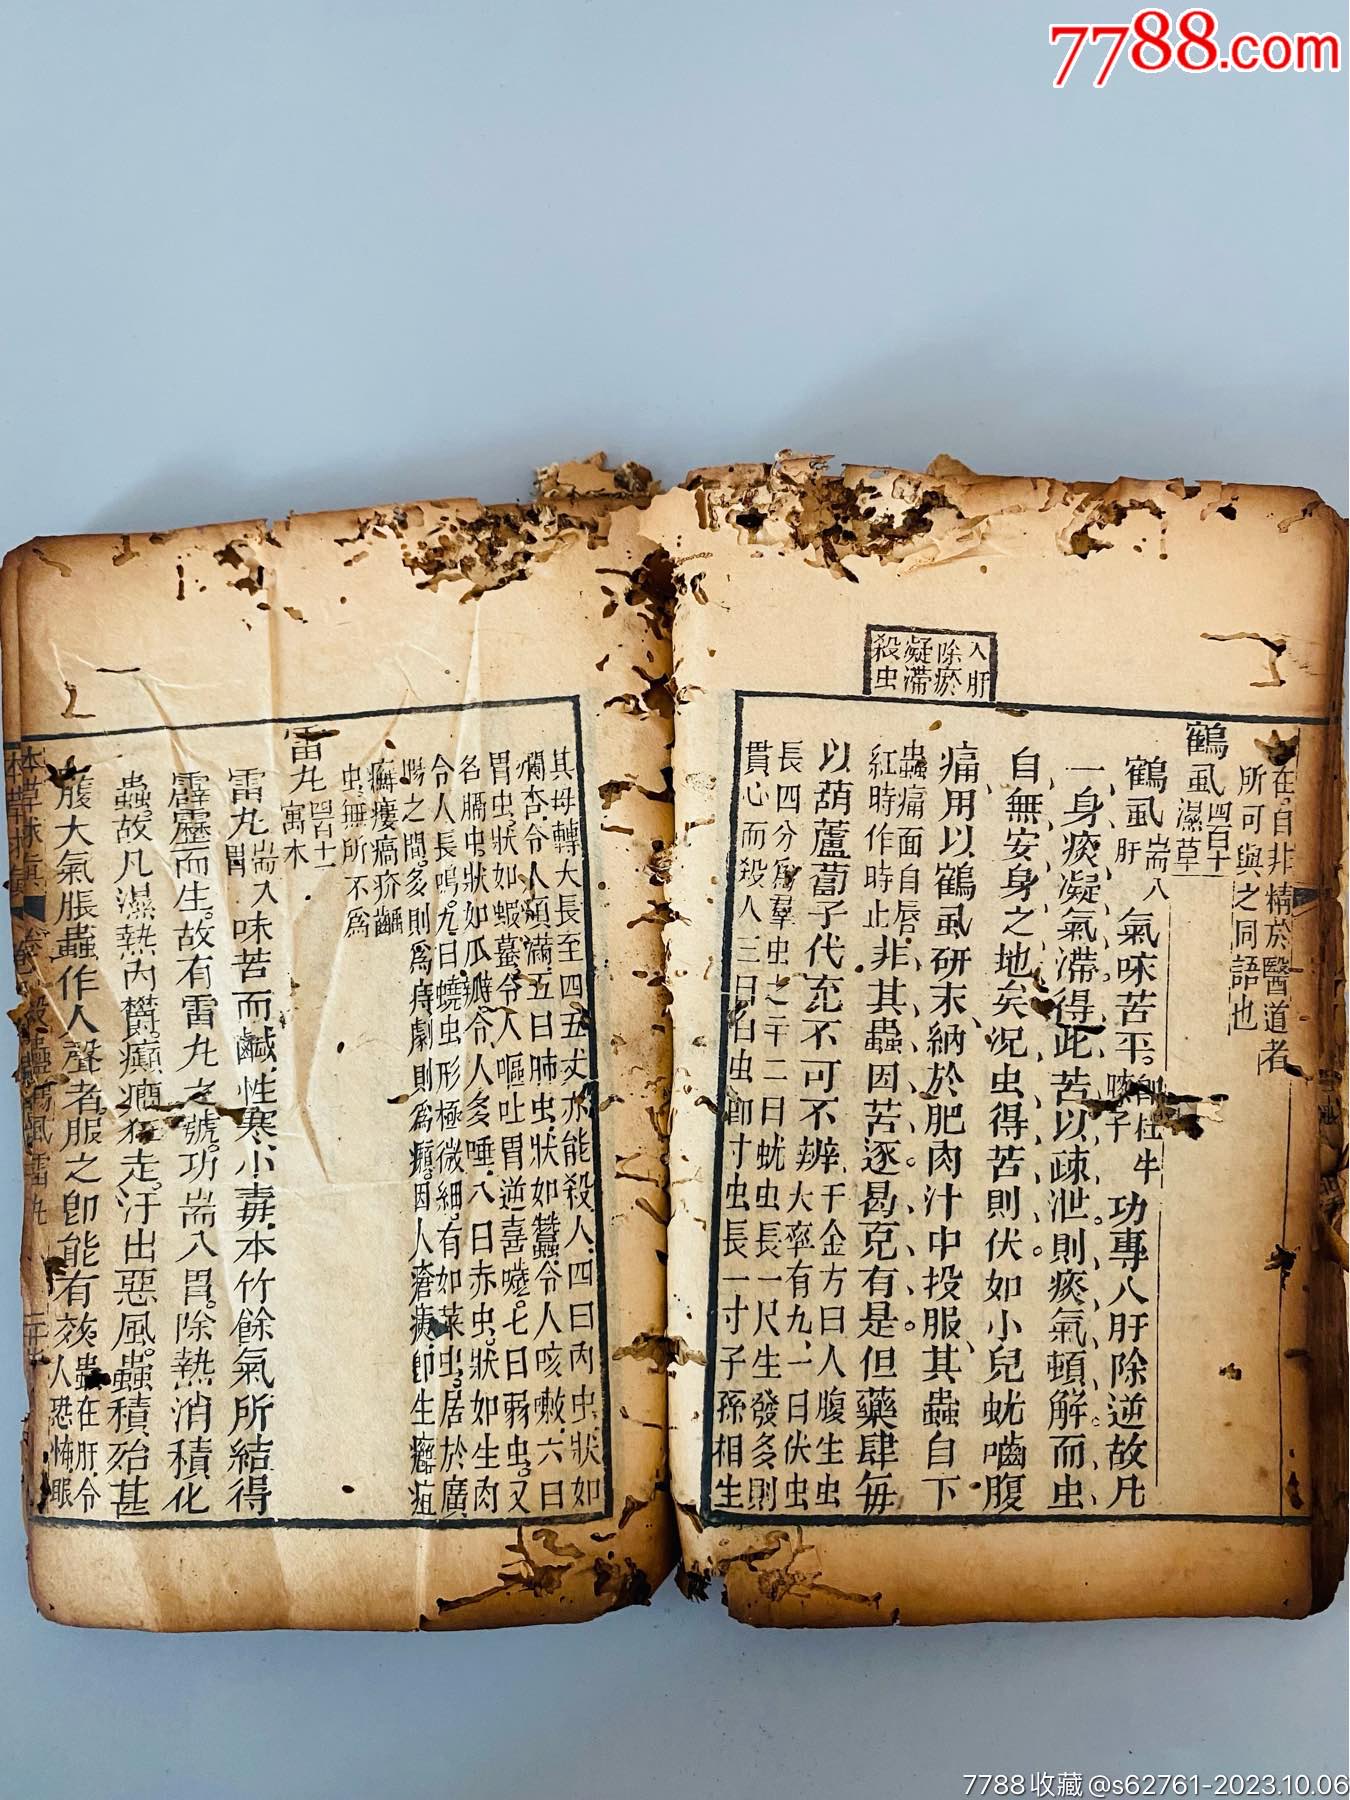 7788.com
入肝
除瘀
凝滯
殺虫
在自非精於醫道者
所可與之同語也
鶴虱 四百十 濕草
鶴虱 耑入肝 氣味苦平 卽杜牛 子 功專入肝除逆故凡
一身痰凝氣滯得此苦以疎泄則痰氣頓解而虫
自無安身之地矣况虫得苦則伏如小兒蚘嚙腹
痛用以鶴虱研末納於肥肉汁中投服其蟲自下
蟲痛面白唇紅時作時止 非其蟲因苦逐曷克有是但藥肆每
以葫蘆蔔子代充不可不辨 千金方曰人腹生虫
大率有九一曰伏虫
長四分爲羣虫之 二曰蚘虫長一尺生發多則
貫心而殺人三曰白虫 寸虫長一寸子孫相生
其母轉大長至四五丈亦能殺人四曰肉虫狀如
爛杏令人煩滿五曰肺虫狀如蠶令人咳嗽六曰
胃虫狀如蝦蟇令人嘔吐胃逆喜噦七曰弱虫又
名膈虫狀如瓜瓣令人多唾八曰赤虫狀如生肉
令人長鳴九曰蟯虫形極微細有如菜虫居於廣
腸之間多則爲痔劇則爲癩因人瘡痍卽生癰疽
癬瘻瘑疥齲
虫無所不爲
雷丸 四百十一 寓木
雷丸 耑入胃 味苦而鹹性寒小毒本竹餘氣所結得
霹靂而生故有雷丸之號功耑入胃除熱消積化
蟲故凡濕熱內鬱癲癎狂走汗出惡風蟲積殆甚
腹大氣脹蟲作人聲者服之卽能有效 蟲在肝令
人恐怖眼
本草求眞 殺蟲 鶴虱 雷丸
7788收藏@s62761-2023.10.06